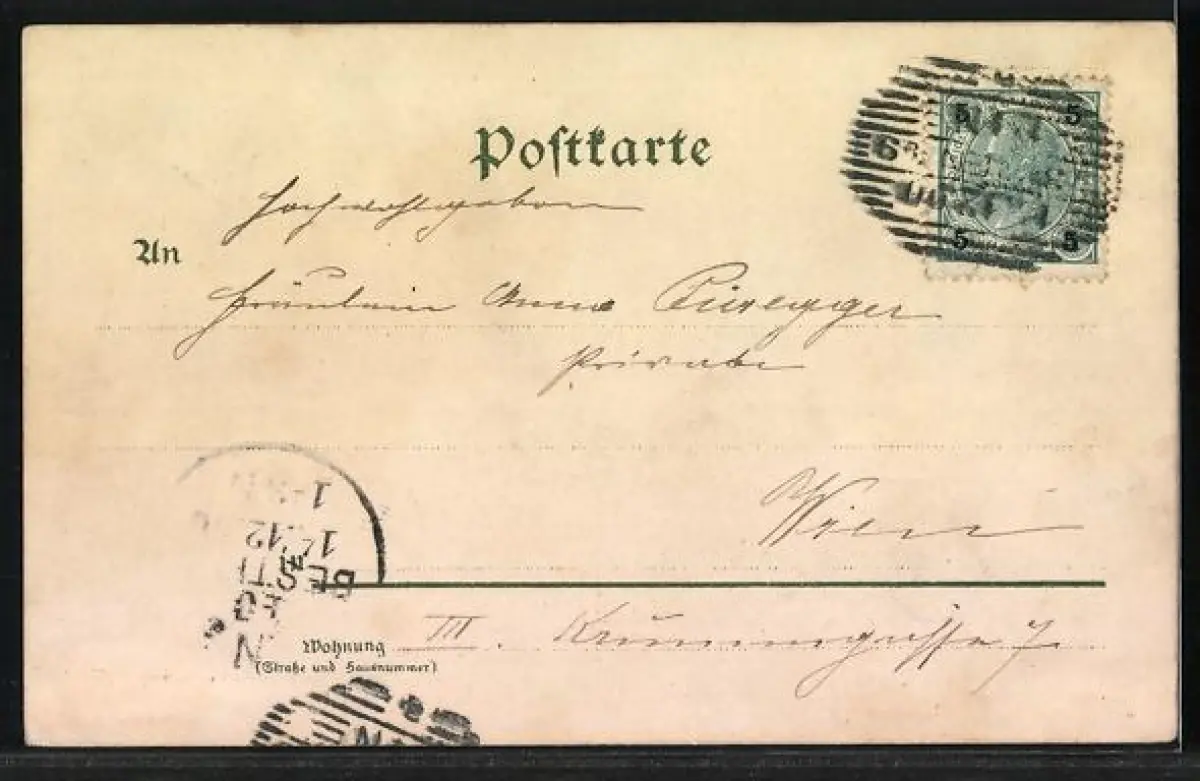 Postkarte
Hochwohlgeboren
An
Fräulein Anna
Private
Wien
III. Krummgasse 7.
Wohnung
(Straße und Hausnummer)
5 5
5 5
BEST
12
1